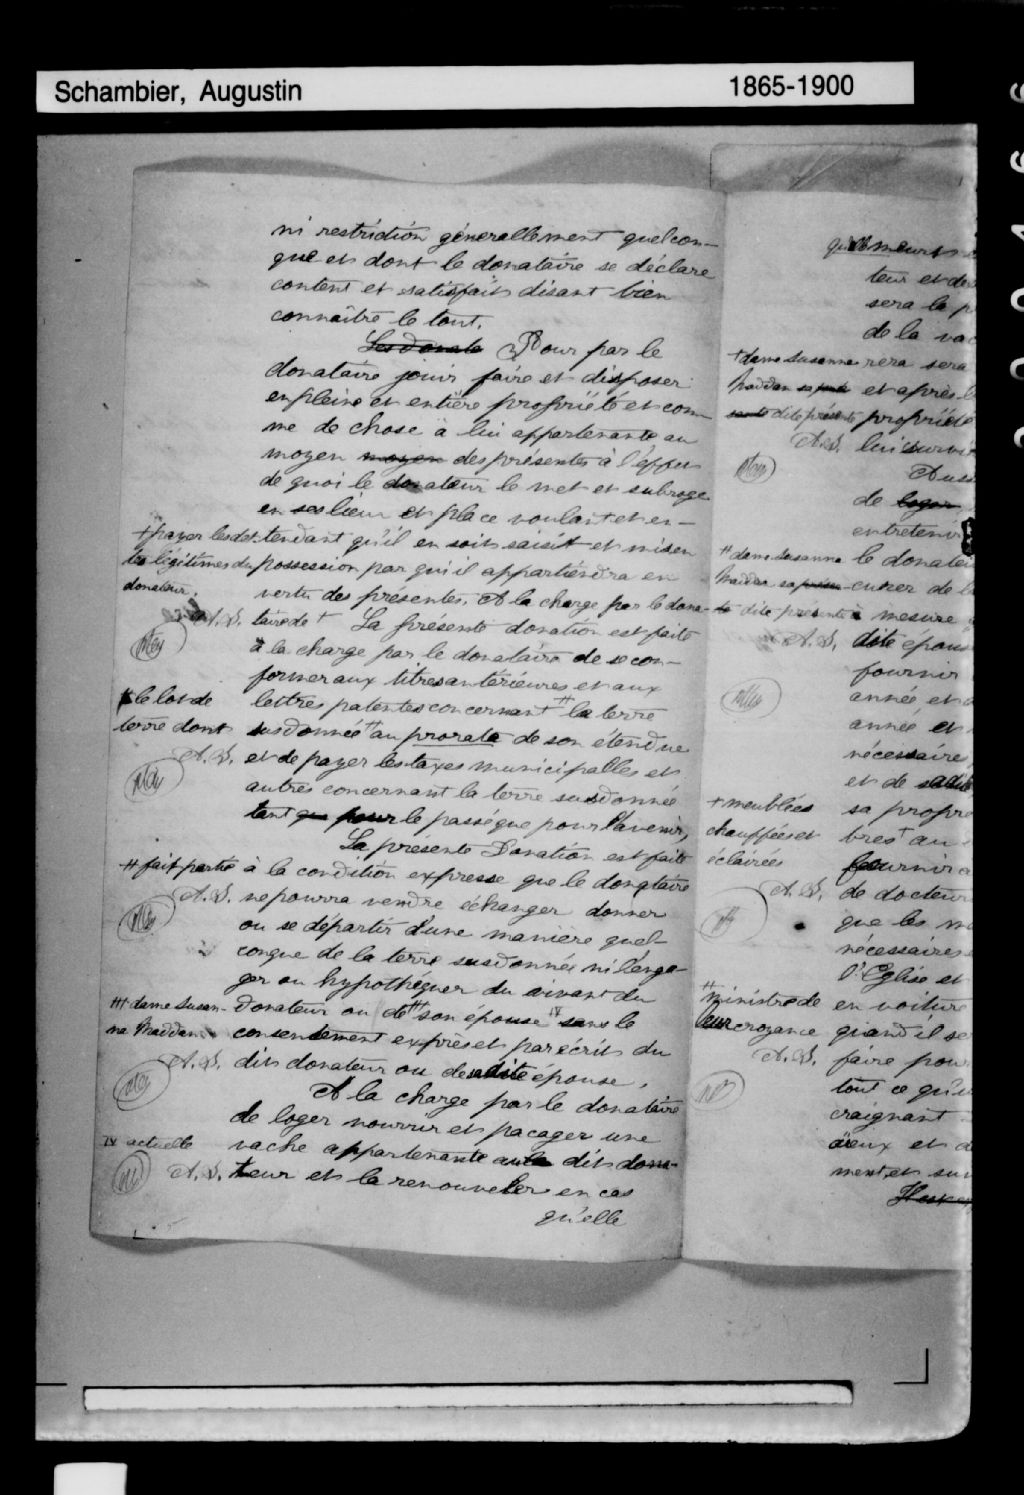 Schambier, Augustin
1865-1900
ni restriction généralement quelcon-
que et dont le donataire se déclare
content et satisfait disant bien
connaître le tout.
Les donata Pour par le
donataire jouir faire et disposer
en pleine et entière propriété et com
me de chose à lui appartenante au
moyen moyen des présentes à l'effet
de quoi le donateur le met et subroge
en ses lieu et place voulant et en-
tendant qu'il en soit saisit et mis en
possession par qui il appartiendra en
vertu des présentes. A la charge par le dona-
taire de + La présente donation est faite
à la charge par le donataire de se con-
former aux titres antérieures et aux
lettres patentes concernant # la terre
susdonnée # au prorata de son étendue
et de payer les taxes municipalles et
autres concernant la terre susdonnée
tant pour le passé que pour l'avenir,
La présente Donation est faite
à la condition expresse que le donataire
ne pourra vendre échanger donner
ou se départir d'une manière quel-
conque de la terre susdonnée ni l'enga-
ger ou hypothéquer du vivant du
donateur ou de # son épouse IV sans le
consentement exprès et par écrit du
dit donateur ou de sa dite épouse.
A la charge par le donataire
de loger nourrir et pacager une
vache appartenante au dit dona-
teur et la renouveler en cas
qu'elle
+ payer les det
tes légitimes du
donateur.
A. S.
# le lot de
terre dont
A. S.
# fait partie
A. S.
### dame Susan-
na Maddan
A. S.
IV actuelle
A. S.
meurt
teur et de
sera la p
de la vac
rera sera
et après
propriété
lui survi
Auss
de loger
entretenir
le donateu
curer de
à mesure
dite épous
fournir
année et
année et
nécessaire
et de
sa propre
bres + au
fournir
de docteur
que les
nécessaires
l'Eglise et
en voiture
quand il se
faire pou
tout ce qu'
craignant
ieux et d
ment et
Il est
+ dame Susanne
Maddan
dite présente
A. S.
# dame Susanna
Maddan
dite présente
A. S.
+ meublées
chauffées et
éclairées
A. S.
# ministre de
leur croyance
A. S.